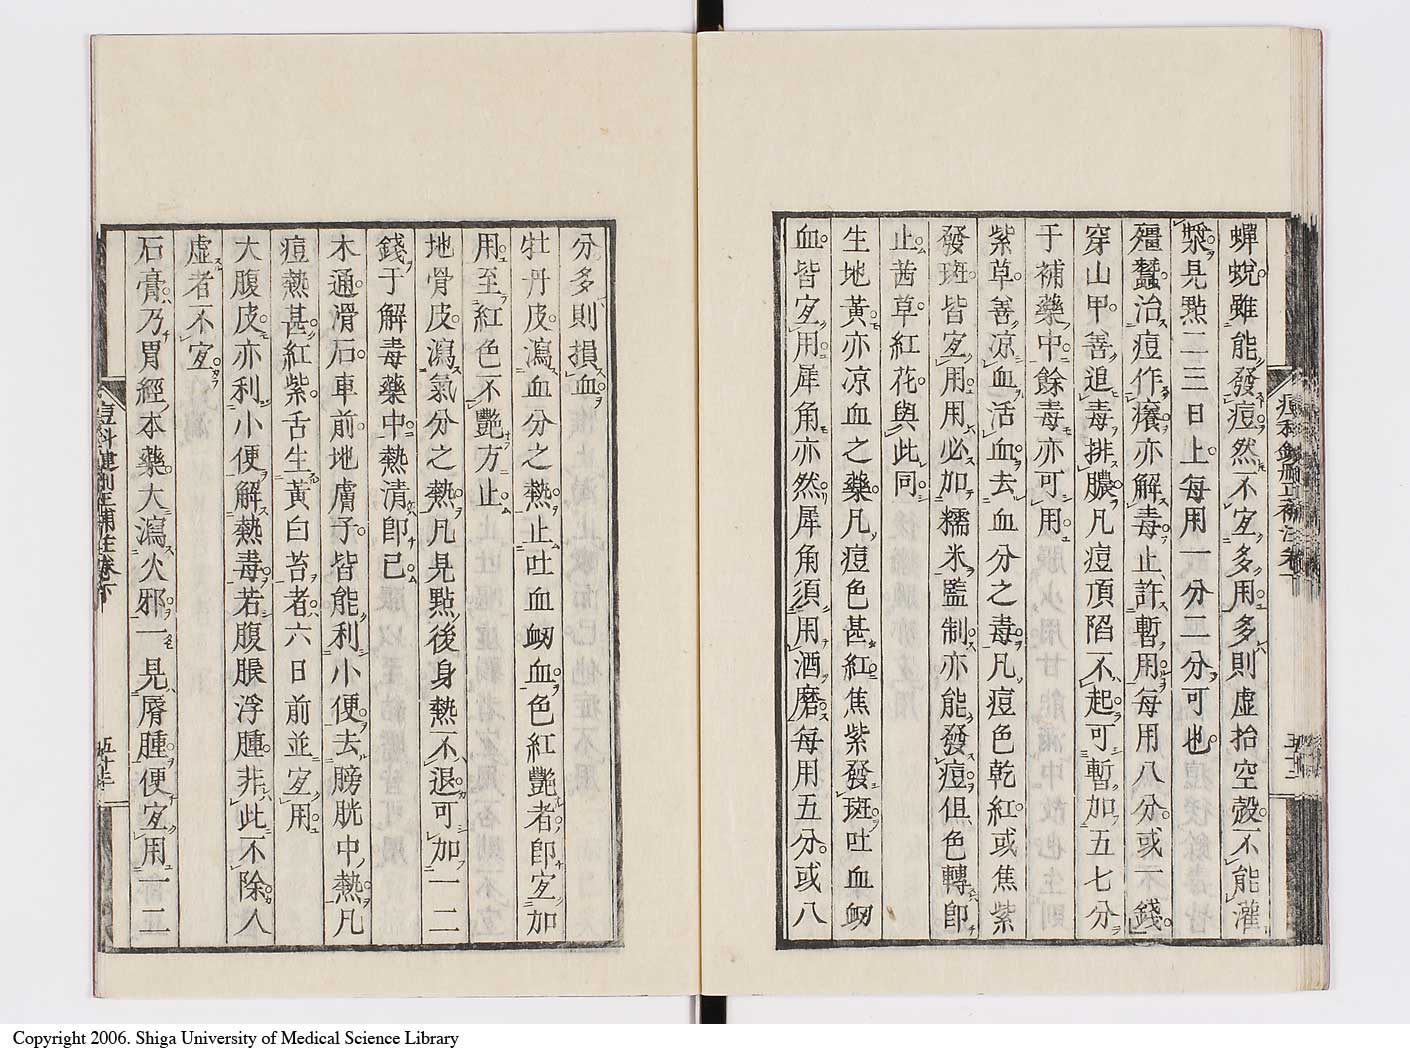 蟬蛻雖能發痘然不宜多用多則虛抬空殼不能灌
漿見點二三日上每用一分二分可也
殭蠶治痘作癢亦解毒止許暫用每用八分或一錢
穿山甲善追毒排膿凡痘頂陷不起可暫加五七分
于補藥中餘毒亦可用
紫草善凉血活血去血分之毒凡痘色乾紅或焦紫
發斑皆宜用用必加糯米監制亦能發痘但色轉卽
止茜草紅花與此同
生地黃亦凉血之藥凡痘色甚紅焦紫發斑吐血衂
血皆宜用犀角亦然犀角須用酒磨每用五分或八
分多則損血
牡丹皮瀉血分之熱止吐血衂血色紅艷者卽宜加
用至紅色不艷方止
地骨皮瀉氣分之熱凡見點後身熱不退可加一二
錢于解毒藥中熱清卽已
木通滑石車前地膚子皆能利小便去膀胱中熱凡
痘熱甚紅紫舌生黃白苔者六日前並宜用
大腹皮亦利小便解熱毒若腹脹浮腫非此不除人
虛者不宜
石膏乃胃經本藥大瀉火邪一見脣腫便宜用一二
痘科鍵刪正補注卷下
五十三
Copyright 2006. Shiga University of Medical Science Library